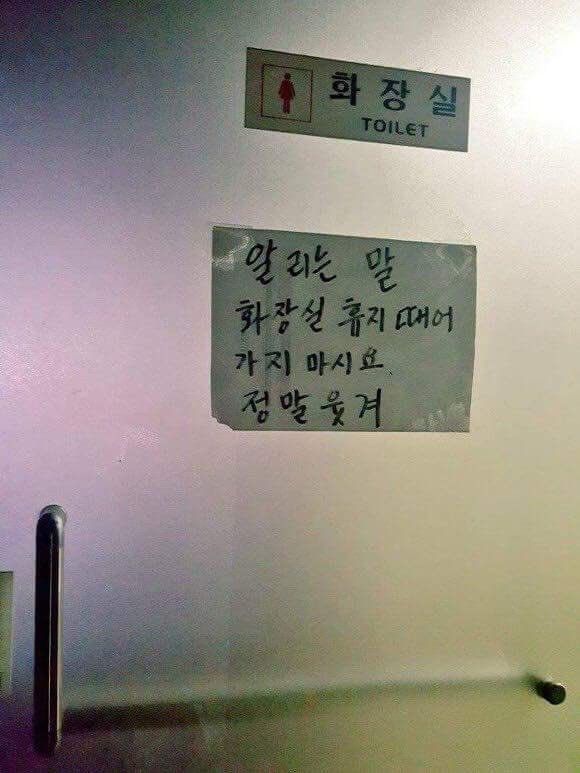 화장실
TOILET
알리는 말
화장실 휴지 떼어
가지 마시요.
정말 웆겨